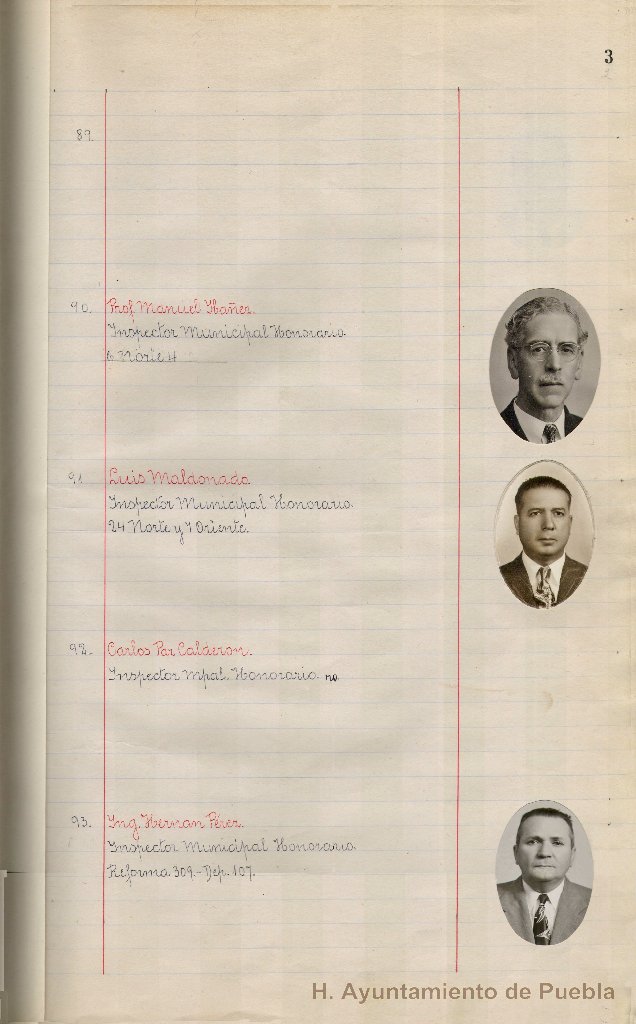 3
89.
90. Prof. Manuel Ibañez.
Inspector Municipal Honorario.
6 Norte 4
91 Luis Maldonado.
Inspector Municipal Honorario.
24 Norte y 7 Oriente.
92. Carlos Paz Calderon.
Inspector Mpal. Honorario. no
93. Ing. Hernan Pérez.
Inspector Municipal Honorario.
Reforma 309.- Dep. 107.
H. Ayuntamiento de Puebla